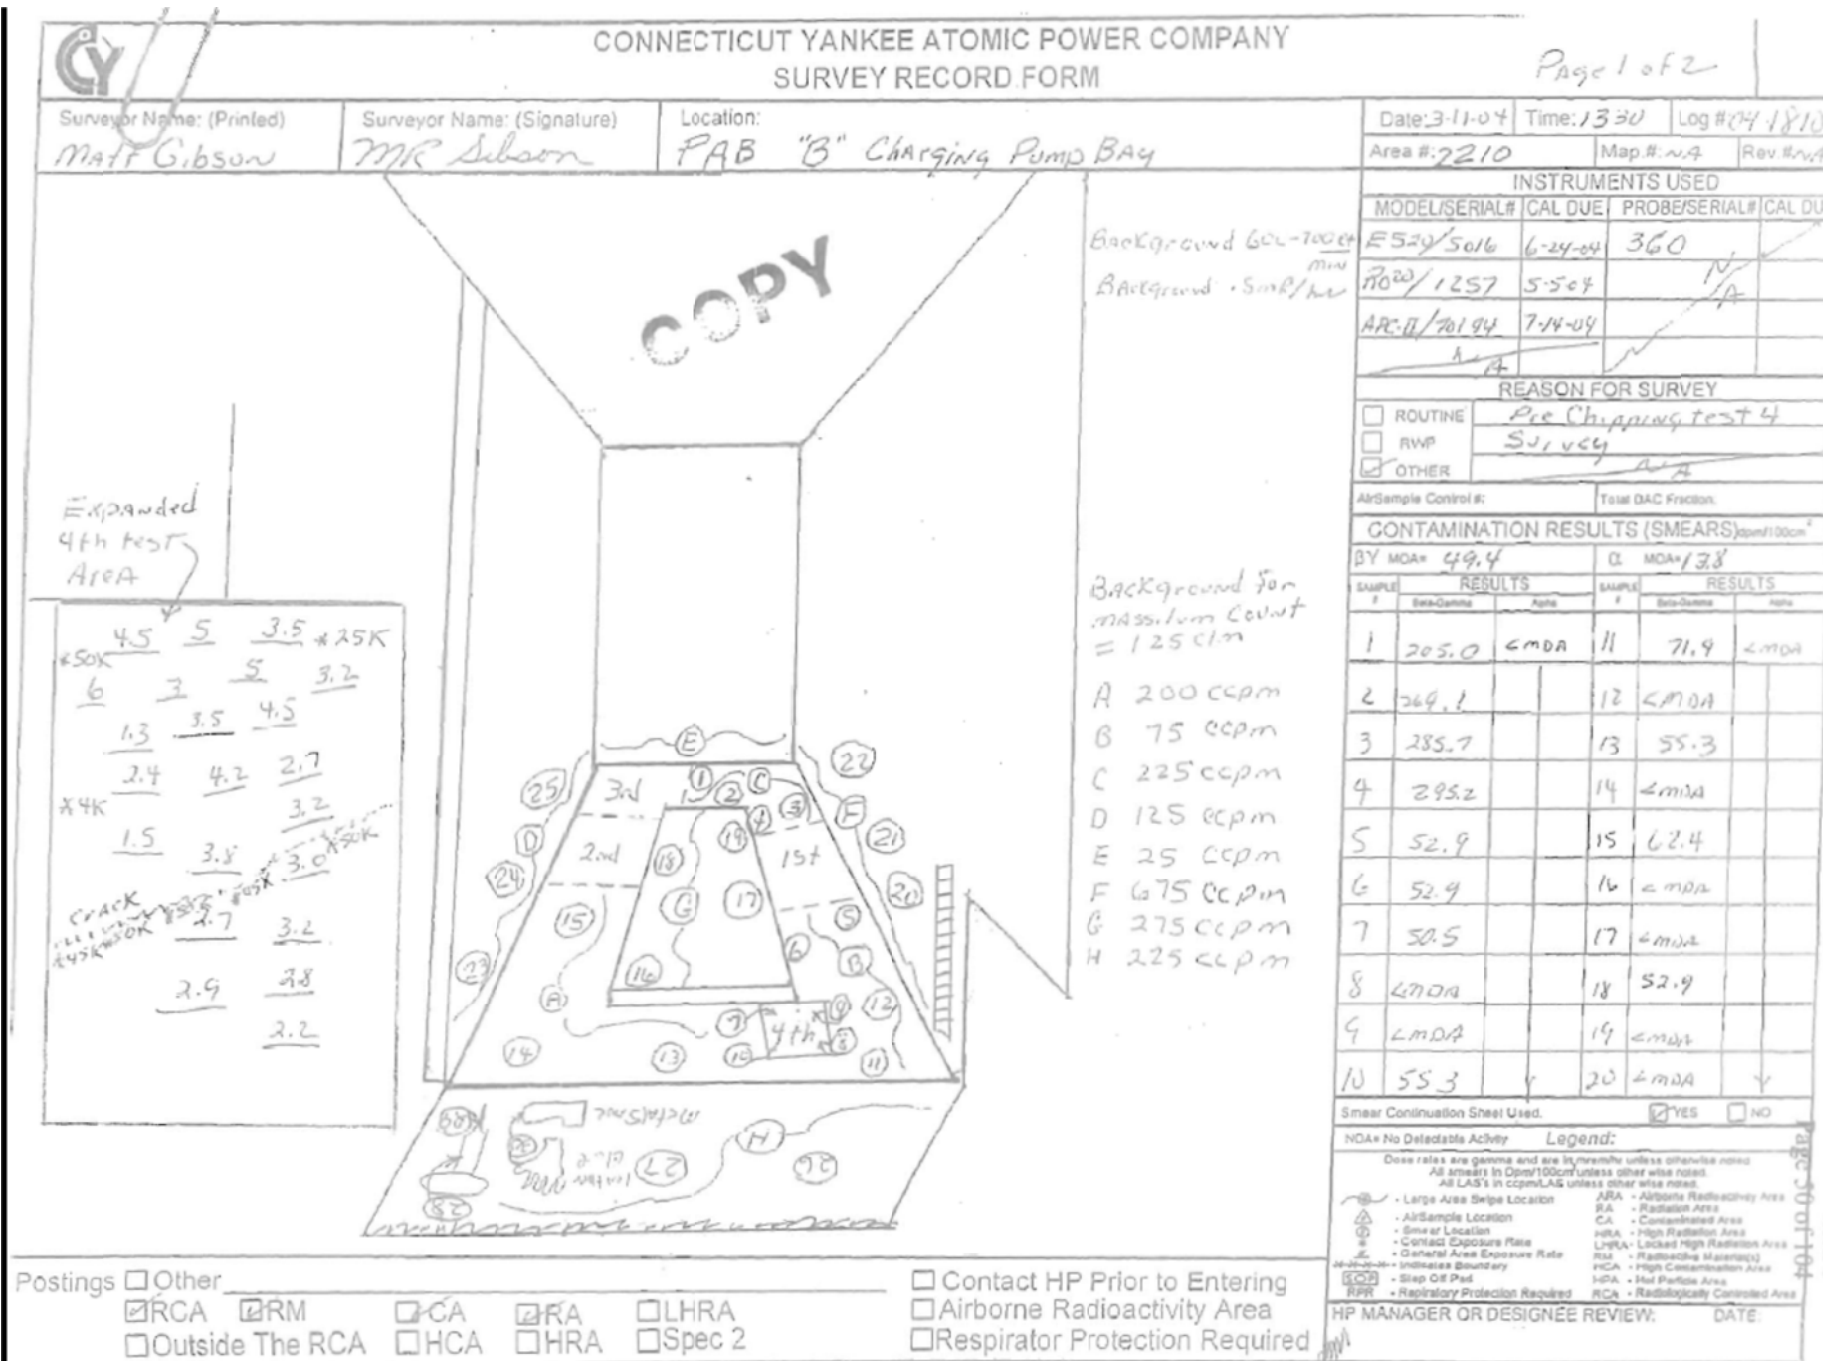 CY
CONNECTICUT YANKEE ATOMIC POWER COMPANY
SURVEY RECORD FORM
Page 1 of 2
Surveyor Name: (Printed)
Matt Gibson
Surveyor Name: (Signature)
MR Gibson
Location:
PAB "B" Charging Pump Bay
Date: 3-11-04 Time: 1330 Log #: 04-1810
Area #: 2210 Map.#: NA Rev.#: NA
INSTRUMENTS USED
MODEL/SERIAL# CAL DUE PROBE/SERIAL# CAL DU
E520/5016 6-24-04 360
RO20/1257 5-5-04
7-14-04
NA
NA
REASON FOR SURVEY
ROUTINE Pre Chipping test 4
RWP Survey
OTHER NA
AirSample Control #: Total DAC Fraction:
CONTAMINATION RESULTS (SMEARS) dpm/100cm²
BY MDA= 49.4 α MDA= 13.8
SAMPLE # RESULTS SAMPLE # RESULTS
Beta-Gamma Alpha Beta-Gamma Alpha
1 205.0 <MDA 11 71.9 <MDA
2 269.1 12 <MDA
3 285.7 13 55.3
4 295.2 14 <MDA
5 52.9 15 62.4
6 52.9 16 <MDA
7 50.5 17 <MDA
8 <MDA 18 52.9
9 <MDA 19 <MDA
10 55.3 20 <MDA
Smear Continuation Sheet Used. YES NO
NDA= No Detectable Activity Legend:
Dose rates are gamma and are in mrem/hr unless otherwise noted
All smears in Dpm/100cm² unless other wise noted.
All LAS's in ccpm/LAS unless other wise noted.
- Large Area Swipe Location
- AirSample Location
- Smear Location
- Contact Exposure Rate
- General Area Exposure Rate
- Indicates Boundary
SOP - Step Off Pad
RPR - Repiratory Protection Required
ARA - Airborne Radioactivity Area
RA - Radiation Area
CA - Contaminated Area
HRA - High Radiation Area
LHRA - Locked High Radiation Area
RM - Radioactive Material(s)
HCA - High Contamination Area
HPA - Hot Particle Area
RCA - Radiologically Controlled Area
HP MANAGER OR DESIGNEE REVIEW: DATE:
Page 50 of 104
COPY
Background 600-700 ct
min
Background .5mR/hr
Background for
Masslum Count
= 125 c/m
A 200 ccpm
B 75 ccpm
C 225 ccpm
D 125 ccpm
E 25 ccpm
F 675 ccpm
G 275 ccpm
H 225 ccpm
Expanded
4th test
Area
4.5 5 3.5 *25K
*50K
6 3 5 3.2
1.3 3.5 4.5
2.4 4.2 2.7
*4K 3.2
1.5 3.8 3.0 *50K
Crack
*45K *50K 2.7 3.2
2.9 2.8
2.2
E
25 3rd 1 2 C 22
D 4 3 F
2nd 18 19 1st 21
24 15 G 17 5 20
23 16 6 B
A 7 4th 9 12
14 13 10 8 11
Metal
H
27 26
28
Postings Other
RCA RM CA RA LHRA
Outside The RCA HCA HRA Spec 2
Contact HP Prior to Entering
Airborne Radioactivity Area
Respirator Protection Required